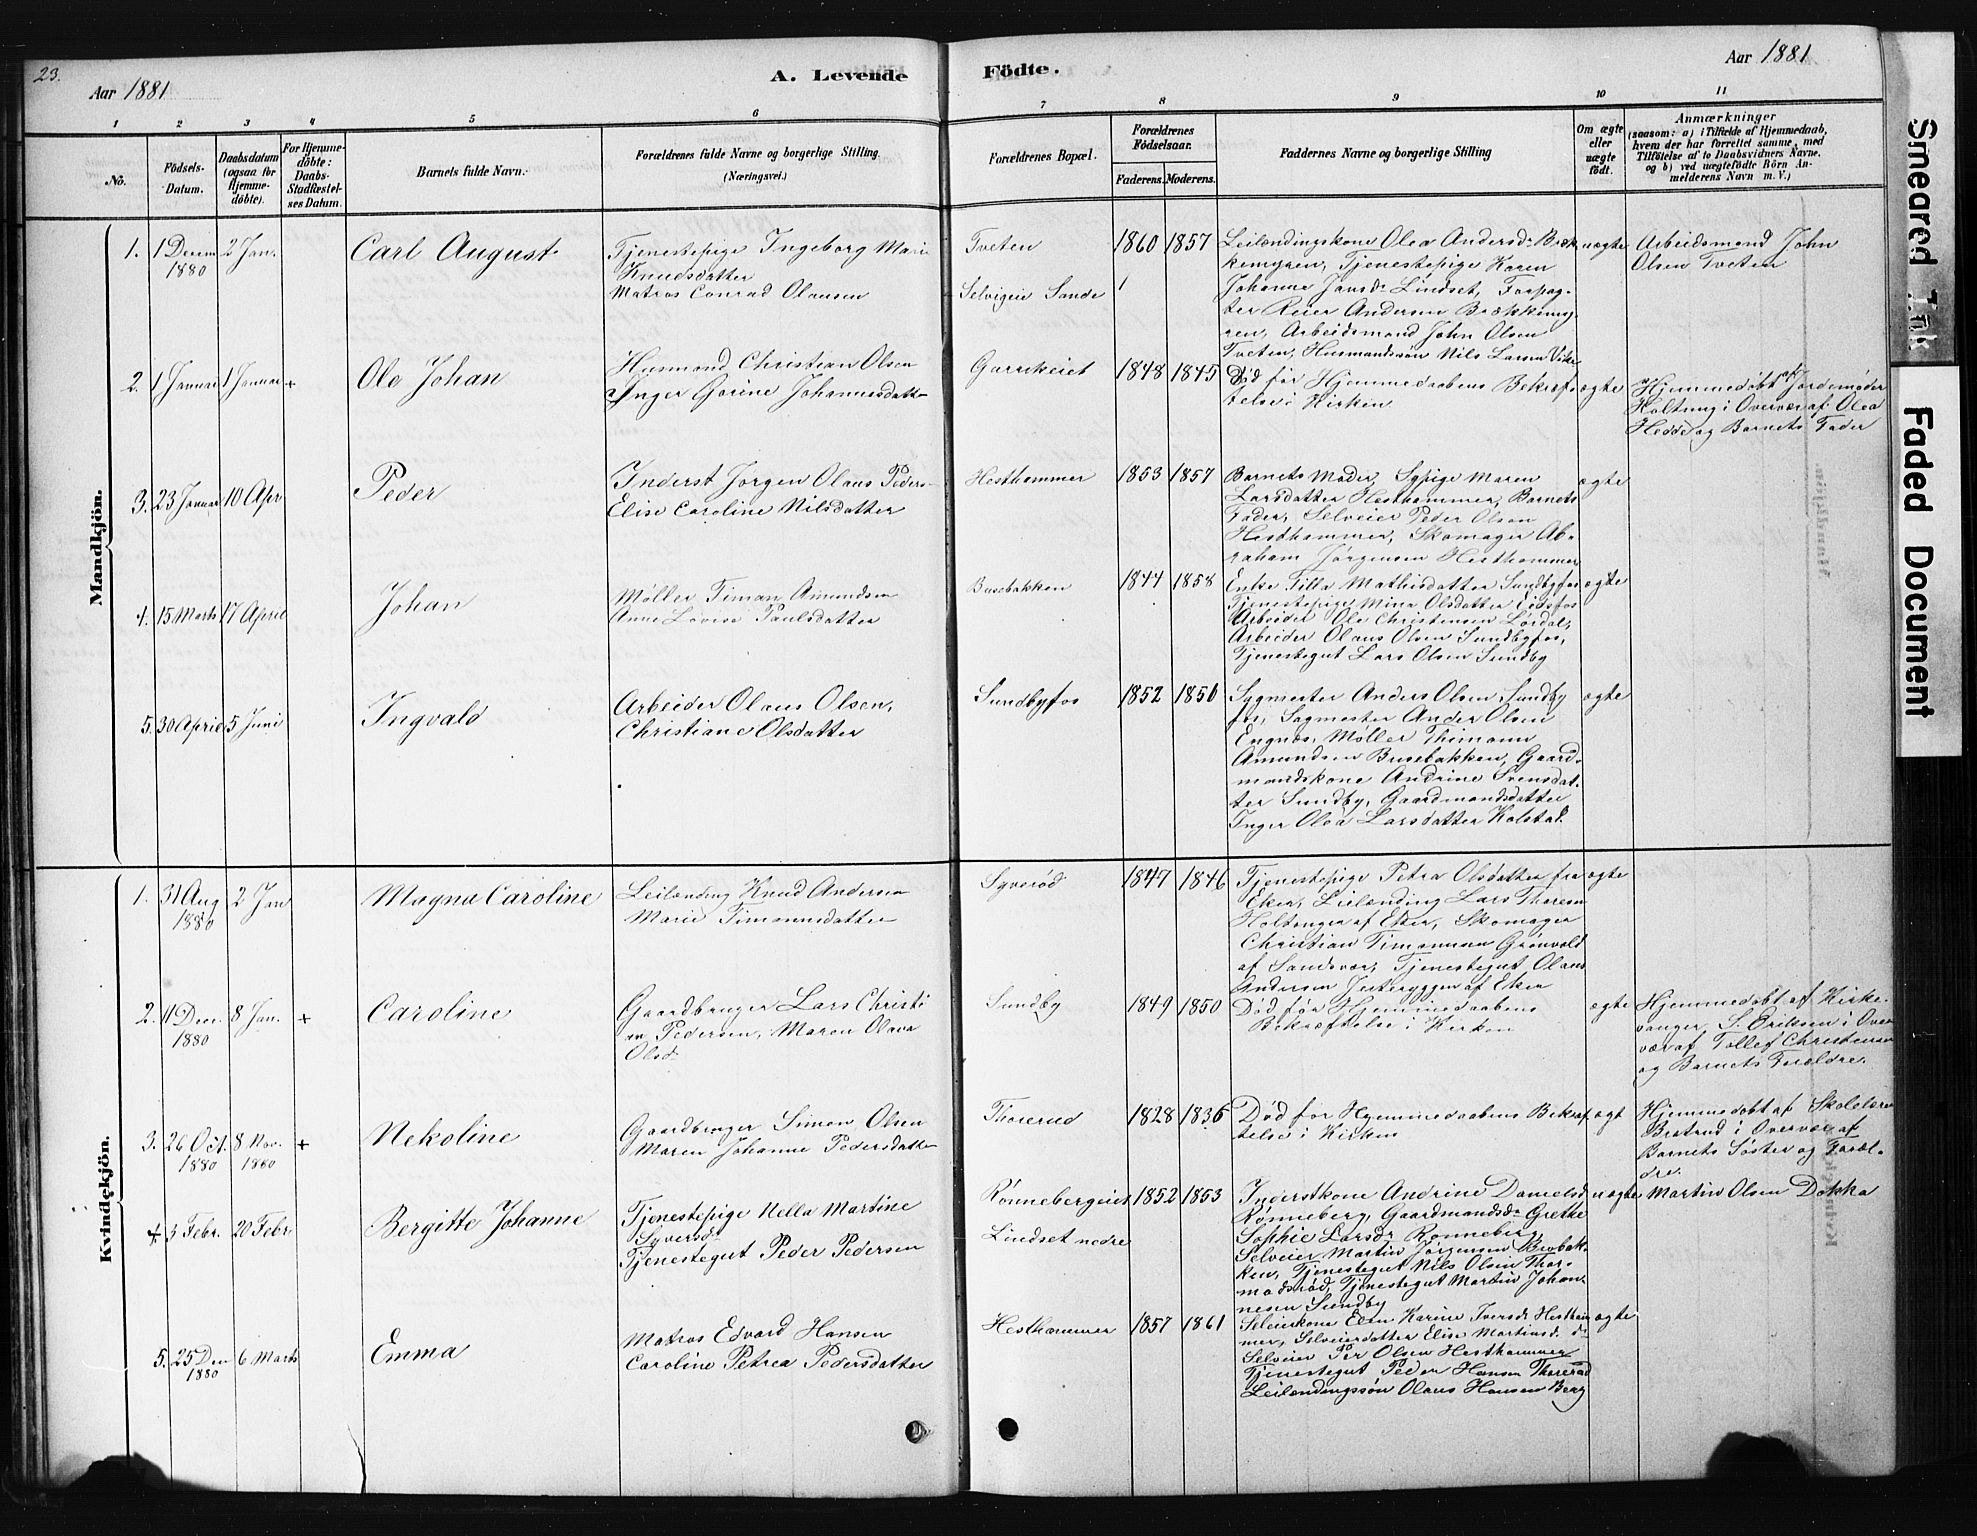 23.
Aar 1881
A. Levende
Födte.
Aar 1881
1 2 3 4 5 6 7 8 9 10 11
No.
Födsels-
Datum.
Daabsdatum
(ogsaa for
Hjemme-
döbte).
For Hjemme-
döbte:
Daabs-
Stadfæstel-
ses Datum.
Barnets fulde Navn.
Forældrenes fulde Navne og borgerlige Stilling
(Næringsvei.)
Forældrenes Bopæl.
Forældrenes
Födselsaar.
Faderens. Moderens.
Faddernes Navne og borgerlige Stilling
Om ægte
eller
uægte
født.
Anmærkninger
(saasom: a) i Tilfælde af Hjemmedaab,
hvem der har forrettet samme, med
Tilföielse af to Daabsvidners Navne.
og b) ved uægtefödte Börn An-
melderens Navn m. V.)
Mandkjön.
1. 1 Decem 1880
2 Jan.
Carl August
Tjenestepige Ingeborg Mari
Knudsdatter
Matros Conrad Olausen
Tveten
Selvigeie Sande
1860 1857
Leilændingskone Olea Andersd. Bræk
kemyren, Tjenestepige Karen
Johanne Jansdr Lindset, Forpag-
ter Reier Andersen Brækkemy-
ren, Arbeidsmand John Olsen
Tveten, Husmandssøn Nils Larsen Vike
uægte
Arbeidsmand John
Olsen Tveten
2. 1 Januar
1 Januar
+
Ole Johan
Husmand Christian Olsen
Inger Gorine Johannesdatter
1848 1845
Død før Hjemmedaabens Bekræf-
telse i Kirken
ægte
Hjemmedøbt af Jordemoder
Holtung i Overvær af Olea
Hedde og Barnets Fader
3. 23 Januar
10 Apr
Peder
Inderst Jørgen Olaus Peders-
Elise Caroline Nilsdatter
Hesthammer
1853 1857
Barnets Moder, Sypige Maren
Larsdatter Hesthammer, Barnets
Fader, Selveier Peder Olsen
Hesthammer, Skomager Ab-
raham Jørgensen Hesthammer
ægte
4. 15 Marts
17 April
Johan
Møller Timan Amundsen
Anne Lovise Paulsdatter
Busebakken
1844 1858
Enke Tilla Mathisdatter Sundbyfos
Tjenestepige Mina Olsdatter Eidsfos
Arbeider Ole Christensen Lørdal,
Arbeider Olaus Olsen Sundbyfos,
Tjenestegut Lars Olsen Sundby
ægte
5. 30 April
5 Juni
Ingvald
Arbeider Olaus Olsen,
Christiane Olsdatter
Sundbyfos
1852 1850
Sagmester Anders Olsen Sundby
fos, Sagmester Ander Olsen
Engnæs, Møller Thimann
Amundsen Busebakken, Gaard-
mandskone Andrine Svensdat-
ter Sundby, Gaardmandsdatter
Inger Olea Larsdatter Kolstad.
ægte
Kvindekjön.
1. 31 Aug 1880
2 Jan
Magna Caroline
Leilænding Knud Andersen
Marie Timannsdatter
Syverød
1847 1846
Tjenestepige Petra Olsdatter fra
Eker, Leilænding Lars Thoresen
Holtungen af Eker, Skomager
Christian Timannsen Grønvold
af Sandsvær, Tjenestegut Olaus
Andersen af Eker
ægte
2. 11 Decr. 1880
8 Jan.
+
Caroline
Gaardbruger Lars Christi
an Pedersen, Maren Olava
Olsd.
Sundby
1849 1850
Død før Hjemmedaabens
Bekræftelse i Kirken
ægte
Hjemmedøbt af Kirke-
sanger S. Eriksen i Over
vær af Tollef Christensen
og Barnets Forældre.
3. 26 Oct. 1880
8 Nov. 1880
+
Nekoline
Gaardbruger Simon Olsen
Maren Johanne Pedersdatter
Thorerud
1828 1836
Død før Hjemmedaabens Bekræf-
telse i Kirken
ægt
Hjemmedøbt af Skolelærer
Bratrud i Overvær af
Barnets Søster og Foræl-
dre.
4. 3 Febr.
20 Febr
Bergitte Johanne
Tjenestepige Nella Martine
Syversd.
Tjenestegut Peder Pedersen
Rønnebergeiet
Lindset nedre
1852 1853
Inderstkone Andrine Danielsd.
Rønneberg, Gaardmandsdr Grethe
Sophie Larsdr Rønneberg,
Selveier Martin Jørgensen Brobak-
ken, Tjenestegut Nils Olsen Thor-
modsrød, Tjenestegut Martin Johan-
nesen Sundby
uægte
Martin Olsen Dokka
5. 25 Dec 1880
6 Marts
Emma
Matros Edvard Hansen
Caroline Petrea Pedersdatter
Hesthammer
1857 1861
Selveierkone Elen Karine Iversd. Hestham
mer, Selveierdatter Elise Martinsd. do
Selveier Per Olsen Hesthammer
Tjenestegut Peder Hansen Thorerud
Leilændingssøn Olaus Hansen Berg
ægte
Smeared Ink
Faded Document